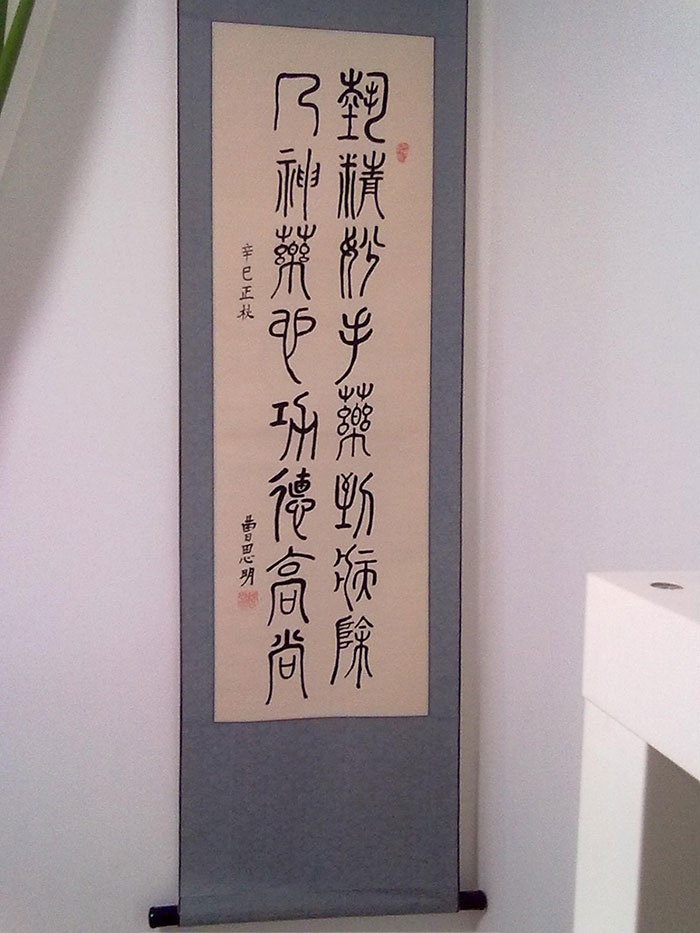 藝精妙手藥到病除
乃神藥也功德高尚
辛巳正秋
曹思明